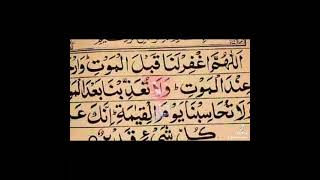 اَللّٰهُمَّ اغْفِرْلَنَا قَبْلَ الْمَوْتِ
عِنْدَ الْمَوْتِ ؕ وَلَا تُعَذِّبْنَا بَعْدَ الْمَوْ
وَلَا تُحَاسِبْنَا يَوْمَ الْقِيٰمَةِ ؕ اِنَّكَ عَ
كُلِّ شَيْءٍ قَدِيْرٌ